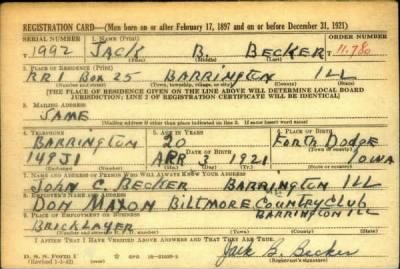 REGISTRATION CARD—(Men born on or after February 17, 1897 and on or before December 31, 1921)
SERIAL NUMBER 1. NAME (Print) ORDER NUMBER
1992 JACK B. BECKER 11,780
(First) (Middle) (Last)
2. PLACE OF RESIDENCE (Print)
RR1 BOX 25 BARRINGTON ILL
(Number and street) (Town, township, village, or city) (County) (State)
[THE PLACE OF RESIDENCE GIVEN ON THE LINE ABOVE WILL DETERMINE LOCAL BOARD
JURISDICTION; LINE 2 OF REGISTRATION CERTIFICATE WILL BE IDENTICAL]
3. MAILING ADDRESS
SAME
[Mailing address if other than place indicated on line 2. If same insert word same]
4. TELEPHONE 5. AGE IN YEARS 6. PLACE OF BIRTH
BARRINGTON 20 FORTH DODGE
DATE OF BIRTH
149J1 APR 3 1921 IOWA
7. NAME AND ADDRESS OF PERSON WHO WILL ALWAYS KNOW YOUR ADDRESS
JOHN C. BECKER BARRINGTON ILL
8. EMPLOYER'S NAME AND ADDRESS
DON MAXON BILTMORE COUNTRY CLUB
9. PLACE OF EMPLOYMENT OR BUSINESS BARRINGTON ILL
BRICKLAYER
I AFFIRM THAT I HAVE VERIFIED ABOVE ANSWERS AND THAT THEY ARE TRUE.
D. S. S. FORM 1
(Revised 1-1-42) (over) Jack B. Becker
(Registrant's signature)